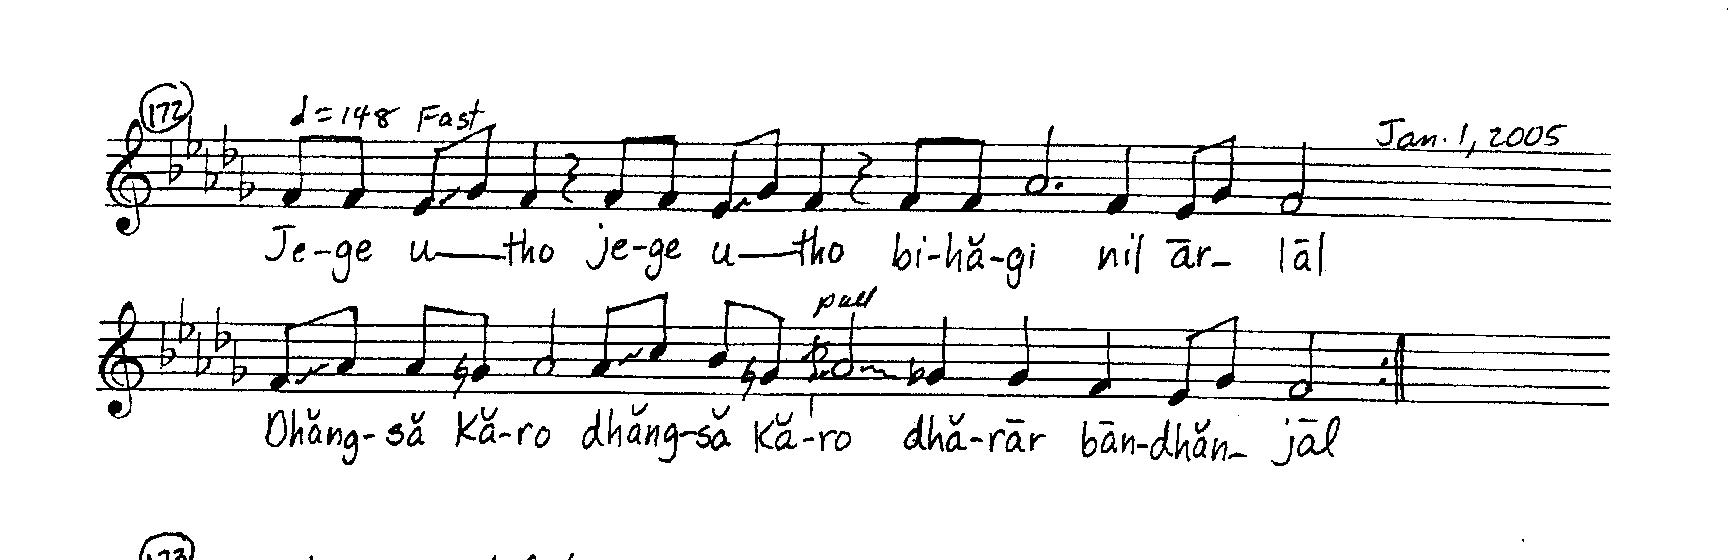 172
♩=148 Fast
Jan. 1, 2005
Je-ge u—tho je-ge u—tho bi-hă-gi nil ār- lāl
pull
Dhăng-să Kă-ro dhăng-să Kă-ro dhă-rār bān-dhăn- jāl
173